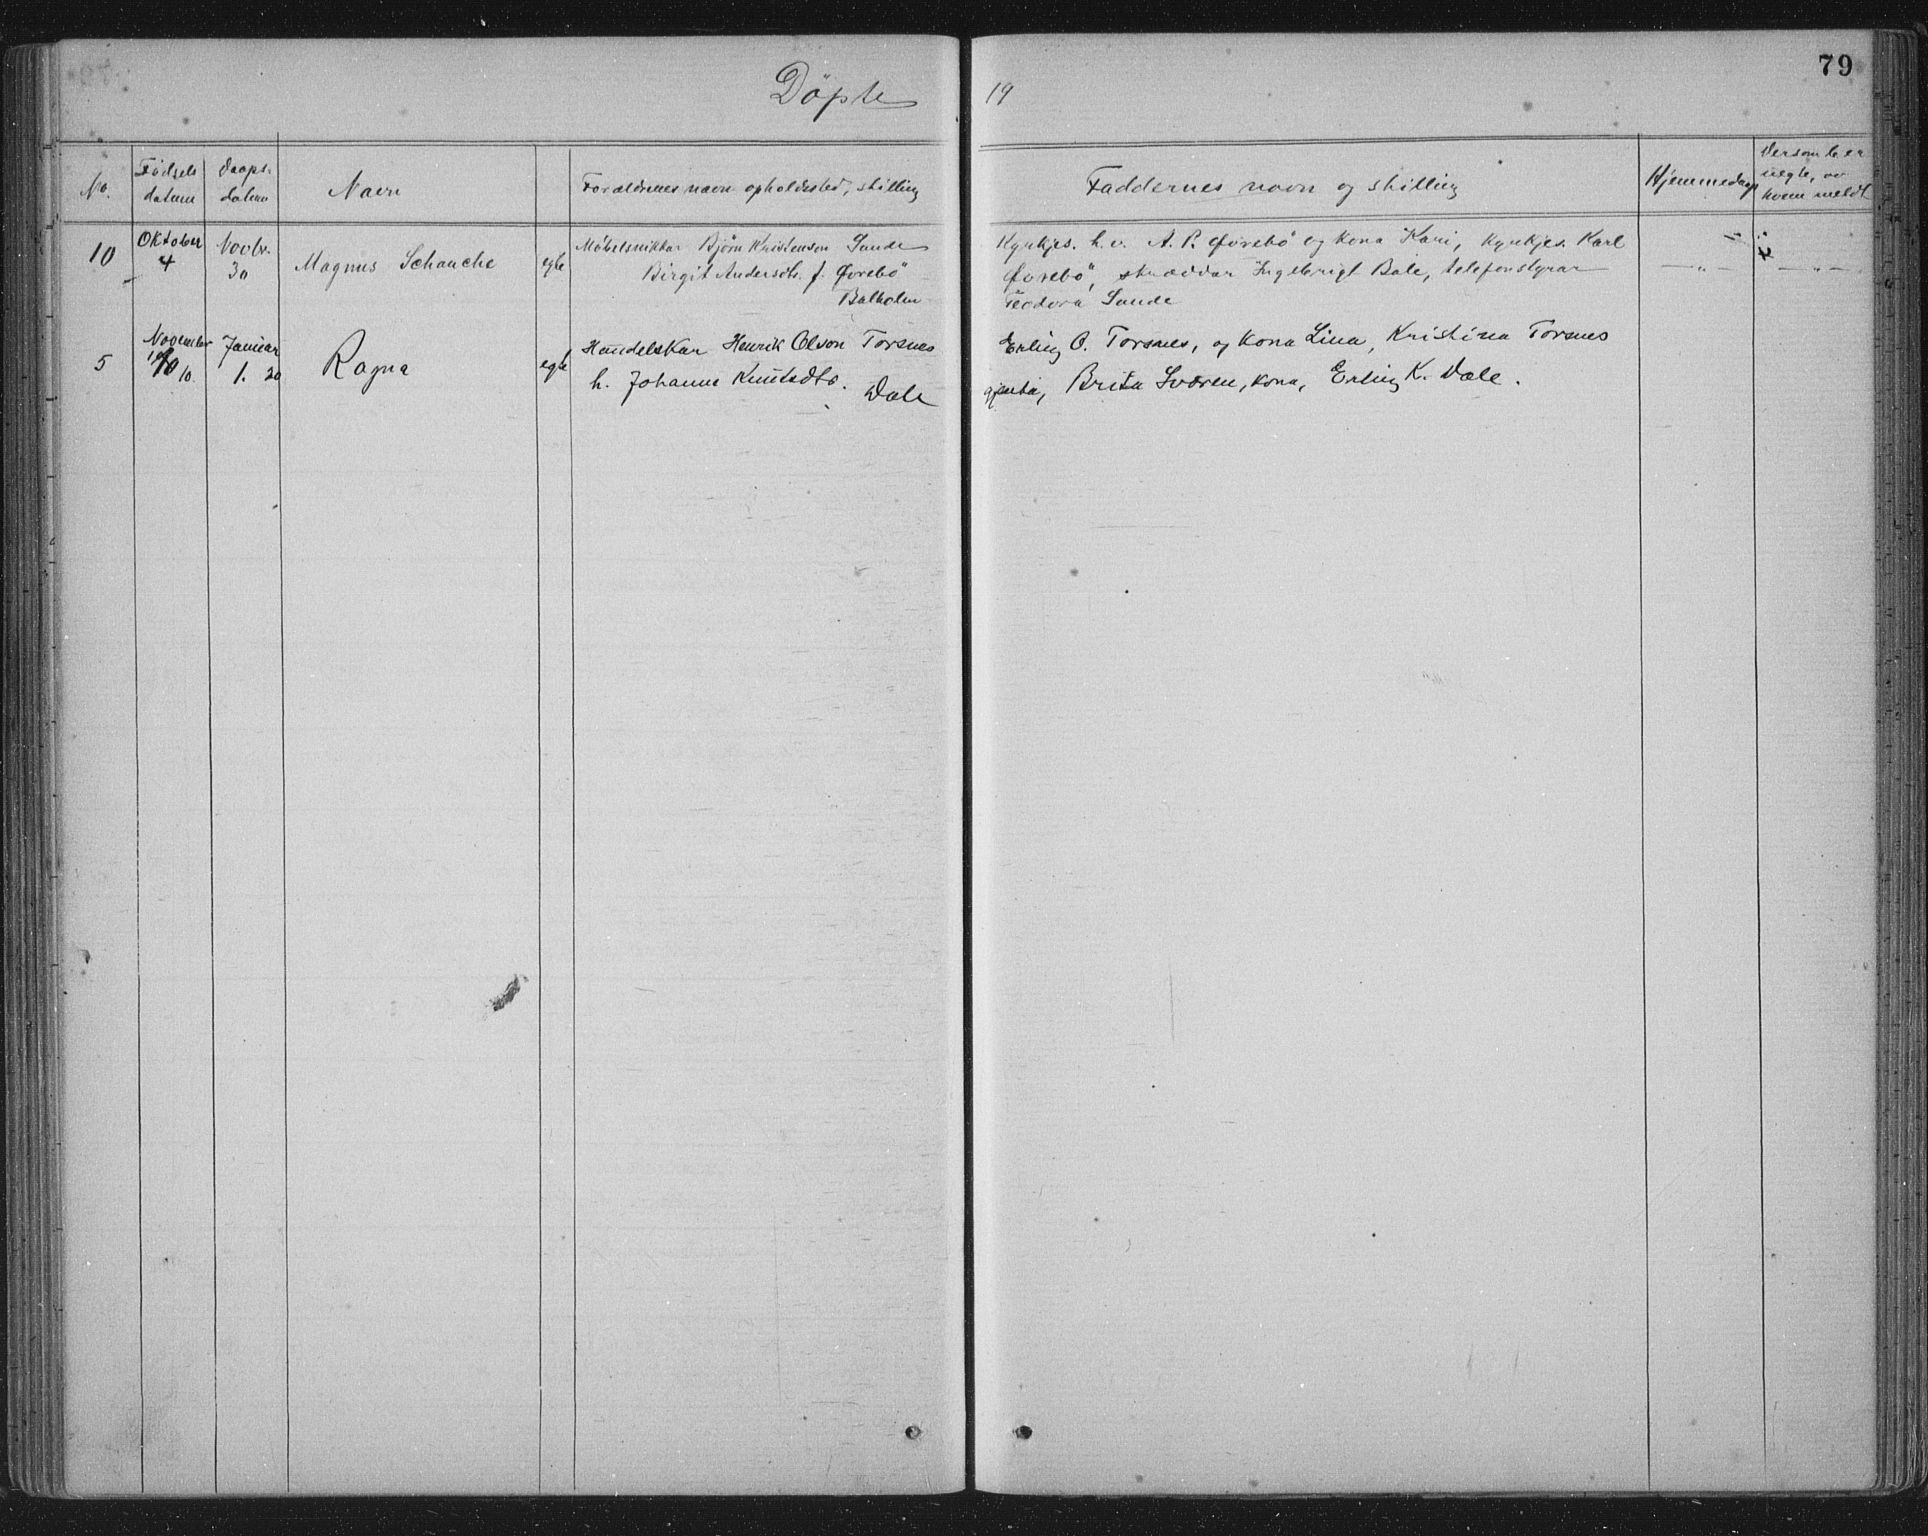 79
Döpte 19
No. Fødsels datum Daaps- datum Navn Forældrenes navn opholdssted, stilling Faddernes navn og stilling Hjemmedaap Dersom b. er uegte, av hvem meldt
10 Oktober 4 Novbr. 30 Magnus Schanche egte Møbelsnikkar Bjørn Kristenson Sande
Birgit Andersdtr. f. Øvrebö
Balholm
Kyrkjes. h.v. A. P. Øvrebö og kona Kari, Kyrkjes. Karl
Øvrebö, skræddar Ingebrigt Bale, telefonstyrar
Teodora Sande
5 November 10 Januar 1. 20 Ragna egte Handelskar Henrik Olson Torsnes
h. Johanne Knutsdtr.
Dale
Erling O. Torsnes, og kona Lina, Kristina Torsnes
gjenta, Brita Sværen, kona, Erling K. Dale.